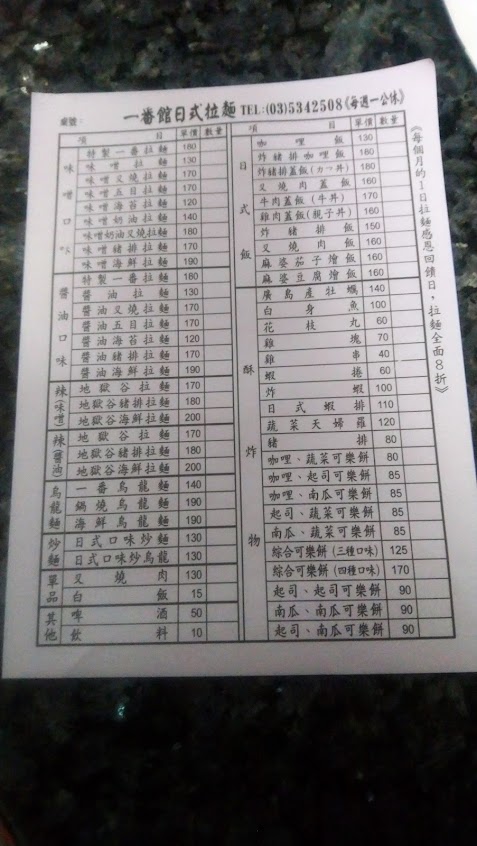 桌號:
一番館日式拉麵 TEL:(03)5342508《每週一公休》
項目 單價 數量
味噌口味
特製一番拉麵 180
味噌拉麵 130
味噌叉燒拉麵 170
味噌五目拉麵 170
味噌海苔拉麵 120
味噌奶油拉麵 140
味噌奶油叉燒拉麵 180
味噌豬排拉麵 170
味噌海鮮拉麵 190
醬油口味
特製一番拉麵 180
醬油拉麵 130
醬油叉燒拉麵 170
醬油五目拉麵 170
醬油海苔拉麵 120
醬油豬排拉麵 170
醬油海鮮拉麵 190
辣(味噌)
地獄谷拉麵 170
地獄谷豬排拉麵 180
地獄谷海鮮拉麵 200
辣(醬油)
地獄谷拉麵 170
地獄谷豬排拉麵 180
地獄谷海鮮拉麵 200
烏龍麵
一番烏龍麵 140
鍋燒烏龍麵 190
海鮮烏龍麵 190
炒麵
日式口味炒麵 130
日式口味炒烏龍 130
單品
叉燒肉 130
白飯 15
其他
啤酒 50
飲料 10
項目 單價 數量
日式飯
咖哩飯 130
炸豬排咖哩飯 180
炸豬排蓋飯(カツ丼) 180
叉燒肉蓋飯 160
牛肉蓋飯(牛丼) 170
雞肉蓋飯(親子丼) 160
炸豬排飯 150
叉燒肉飯 160
麻婆茄子燴飯 160
麻婆豆腐燴飯 160
酥炸物
廣島產牡蠣 140
白身魚 100
花枝丸 60
雞塊 70
雞串 40
蝦捲 60
炸蝦 100
日式蝦排 110
蔬菜天婦羅 120
豬排 80
咖哩、蔬菜可樂餅 80
咖哩、起司可樂餅 85
咖哩、南瓜可樂餅 85
起司、蔬菜可樂餅 85
南瓜、蔬菜可樂餅 85
綜合可樂餅(三種口味) 125
綜合可樂餅(四種口味) 170
起司、起司可樂餅 90
南瓜、南瓜可樂餅 90
起司、南瓜可樂餅 90
《每個月的1日拉麵感恩回饋日,拉麵全面8折》